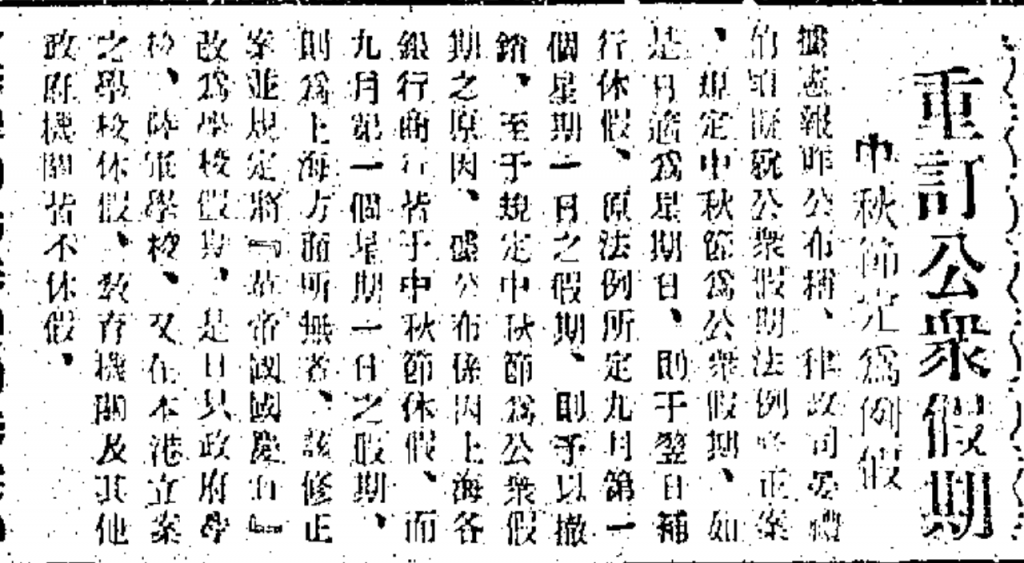 重訂公衆假期
中秋節定爲例假
據憲報昨公布稱、律政司晏禮
伯頃擬就公衆假期法例修正案
、規定中秋節爲公衆假期、如
是日適爲星期日、則于翌日補
行休假、原法例所定九月第一
個星期一日之假期、則予以撤
銷、至于規定中秋節爲公衆假
期之原因、據公布係因上海各
銀行商行皆于中秋節休假、而
九月第一個星期一日之假期、
則爲上海方面所無者、該修正
案並規定將『帝國國慶日』
改爲學校假期、是日只政府學
校、陸軍學校、又在本港立案
之學校休假、教育機關及其他
政府機關皆不休假、